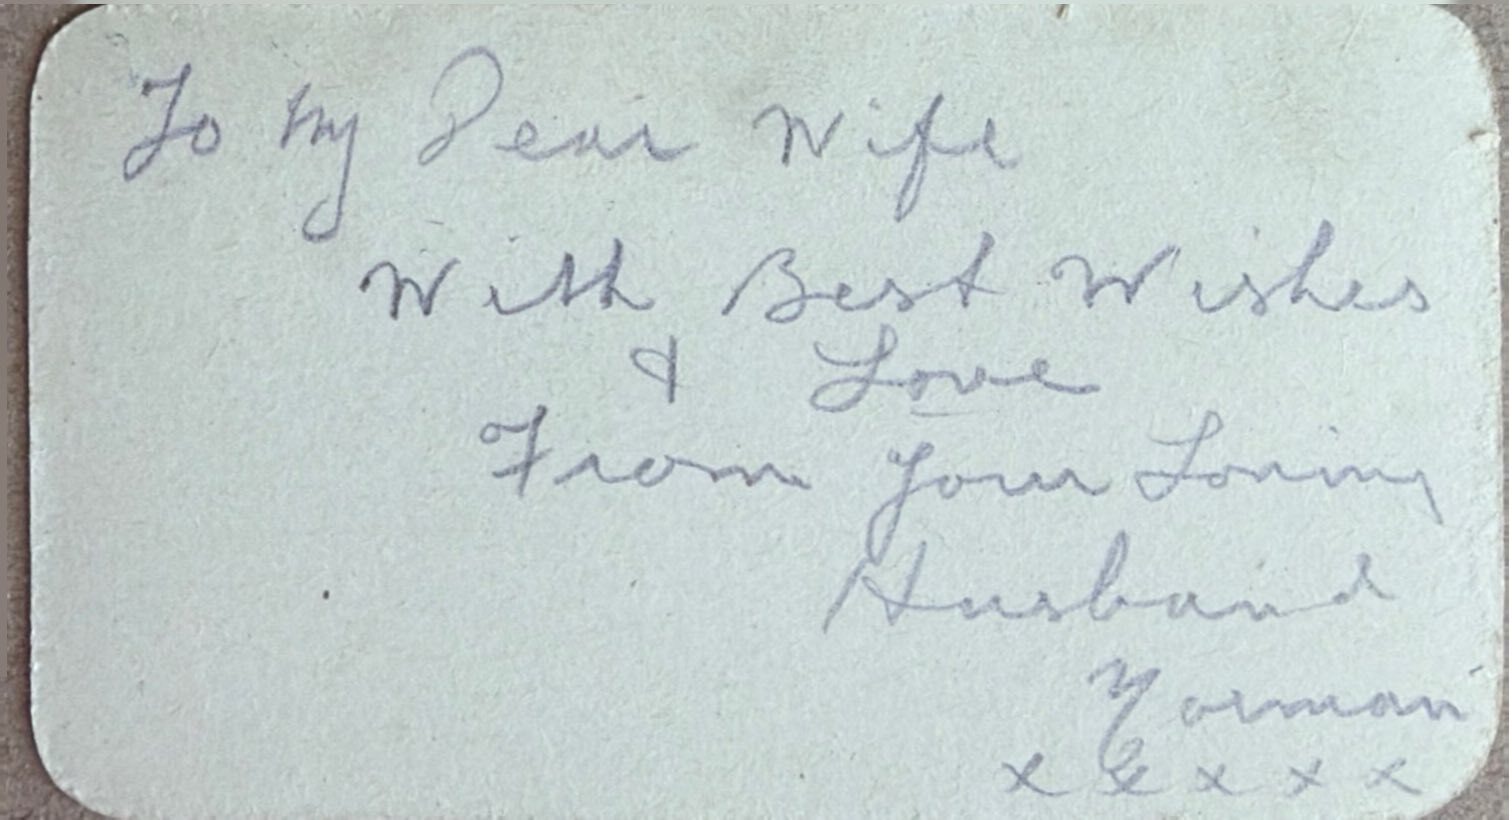 To My Dear Wife
With Best Wishes
& Love
From your Loving
Husband
Norman
x x x x x